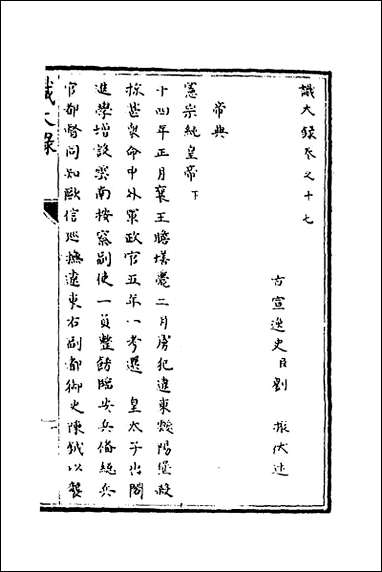 識大錄卷之十七
古宣逸史臣劉 振伏述
帝典
憲宗純皇帝下
十四年正月襄王瞻墡薨二月虜犯遼東靉陽堡殺
掠甚衆命中外軍政官五年一考選 皇太子出閣
進學增設雲南按察副使一員整飭臨安兵備總兵
官都督同知歐信巡撫遼東右副都御史陳鉞以襲
識大錄
一